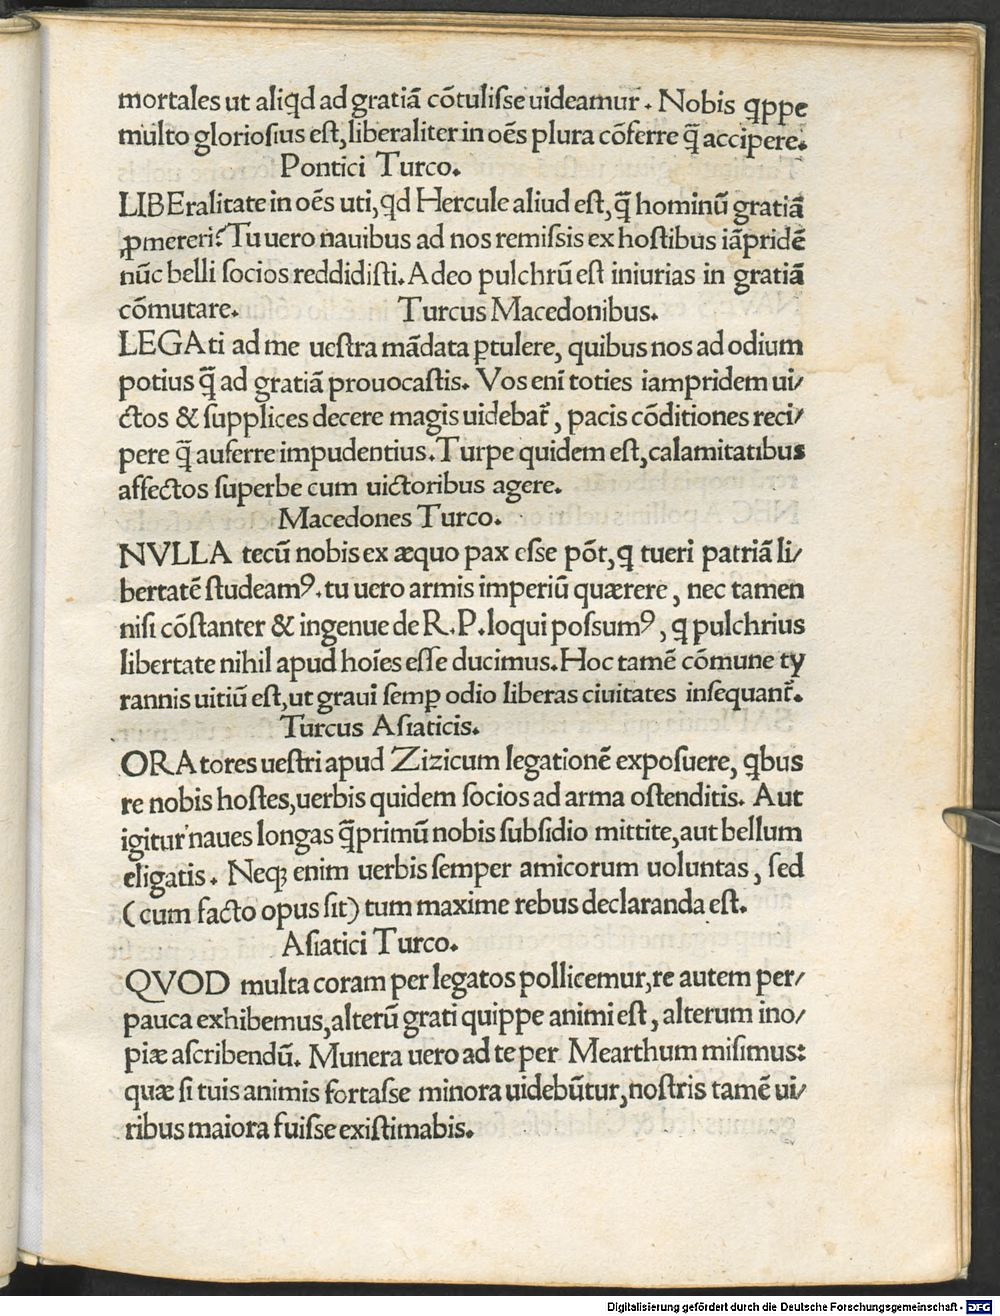 mortales ut aliꝗd ad gratiā cōtulisse uideamur. Nobis ꝗppe
multo gloriosius est, liberaliter in oēs plura cōferre q̄ accipere.
Pontici Turco.
LIBEralitate in oēs uti, qd Hercule aliud est, q̄ hominū gratiā
ꝓmereri? Tu uero nauibus ad nos remissis ex hostibus iāpridē
nūc belli socios reddidisti. Adeo pulchrū est iniurias in gratiā
cōmutare. Turcus Macedonibus.
LEGAti ad me uestra mādata ꝑtulere, quibus nos ad odium
potius q̄ ad gratiā prouocastis. Vos eni toties iampridem ui/
ctos & supplices decere magis uidebat̄, pacis cōditiones reci/
pere q̄ auferre impudentius. Turpe quidem est, calamitatibus
affectos superbe cum uictoribus agere.
Macedones Turco.
NVLLA tecū nobis ex æquo pax esse pōt, ꝙ tueri patriā li/
bertatē studeamꝰ. tu uero armis imperiū quærere, nec tamen
nisi cōstanter & ingenue de R.P. loqui possumꝰ, ꝙ pulchrius
libertate nihil apud hoīes esse ducimus. Hoc tamē cōmune ty
rannis uitiū est, ut graui semꝑ odio liberas ciuitates insequant̄.
Turcus Asiaticis.
ORAtores uestri apud Zizicum legationē exposuere, ꝗbus
re nobis hostes, uerbis quidem socios ad arma ostenditis. Aut
igitur naues longas q̄primū nobis subsidio mittite, aut bellum
eligatis. Neqꝫ enim uerbis semper amicorum uoluntas, sed
(cum facto opus sit) tum maxime rebus declaranda est.
Asiatici Turco.
QVOD multa coram per legatos pollicemur, re autem per/
pauca exhibemus, alterū grati quippe animi est, alterum ino/
piæ ascribendū. Munera uero ad te per Mearthum misimus:
quæ si tuis animis fortasse minora uidebūtur, nostris tamē ui/
ribus maiora fuisse existimabis.
Digitalisierung gefördert durch die Deutsche Forschungsgemeinschaft - DFG